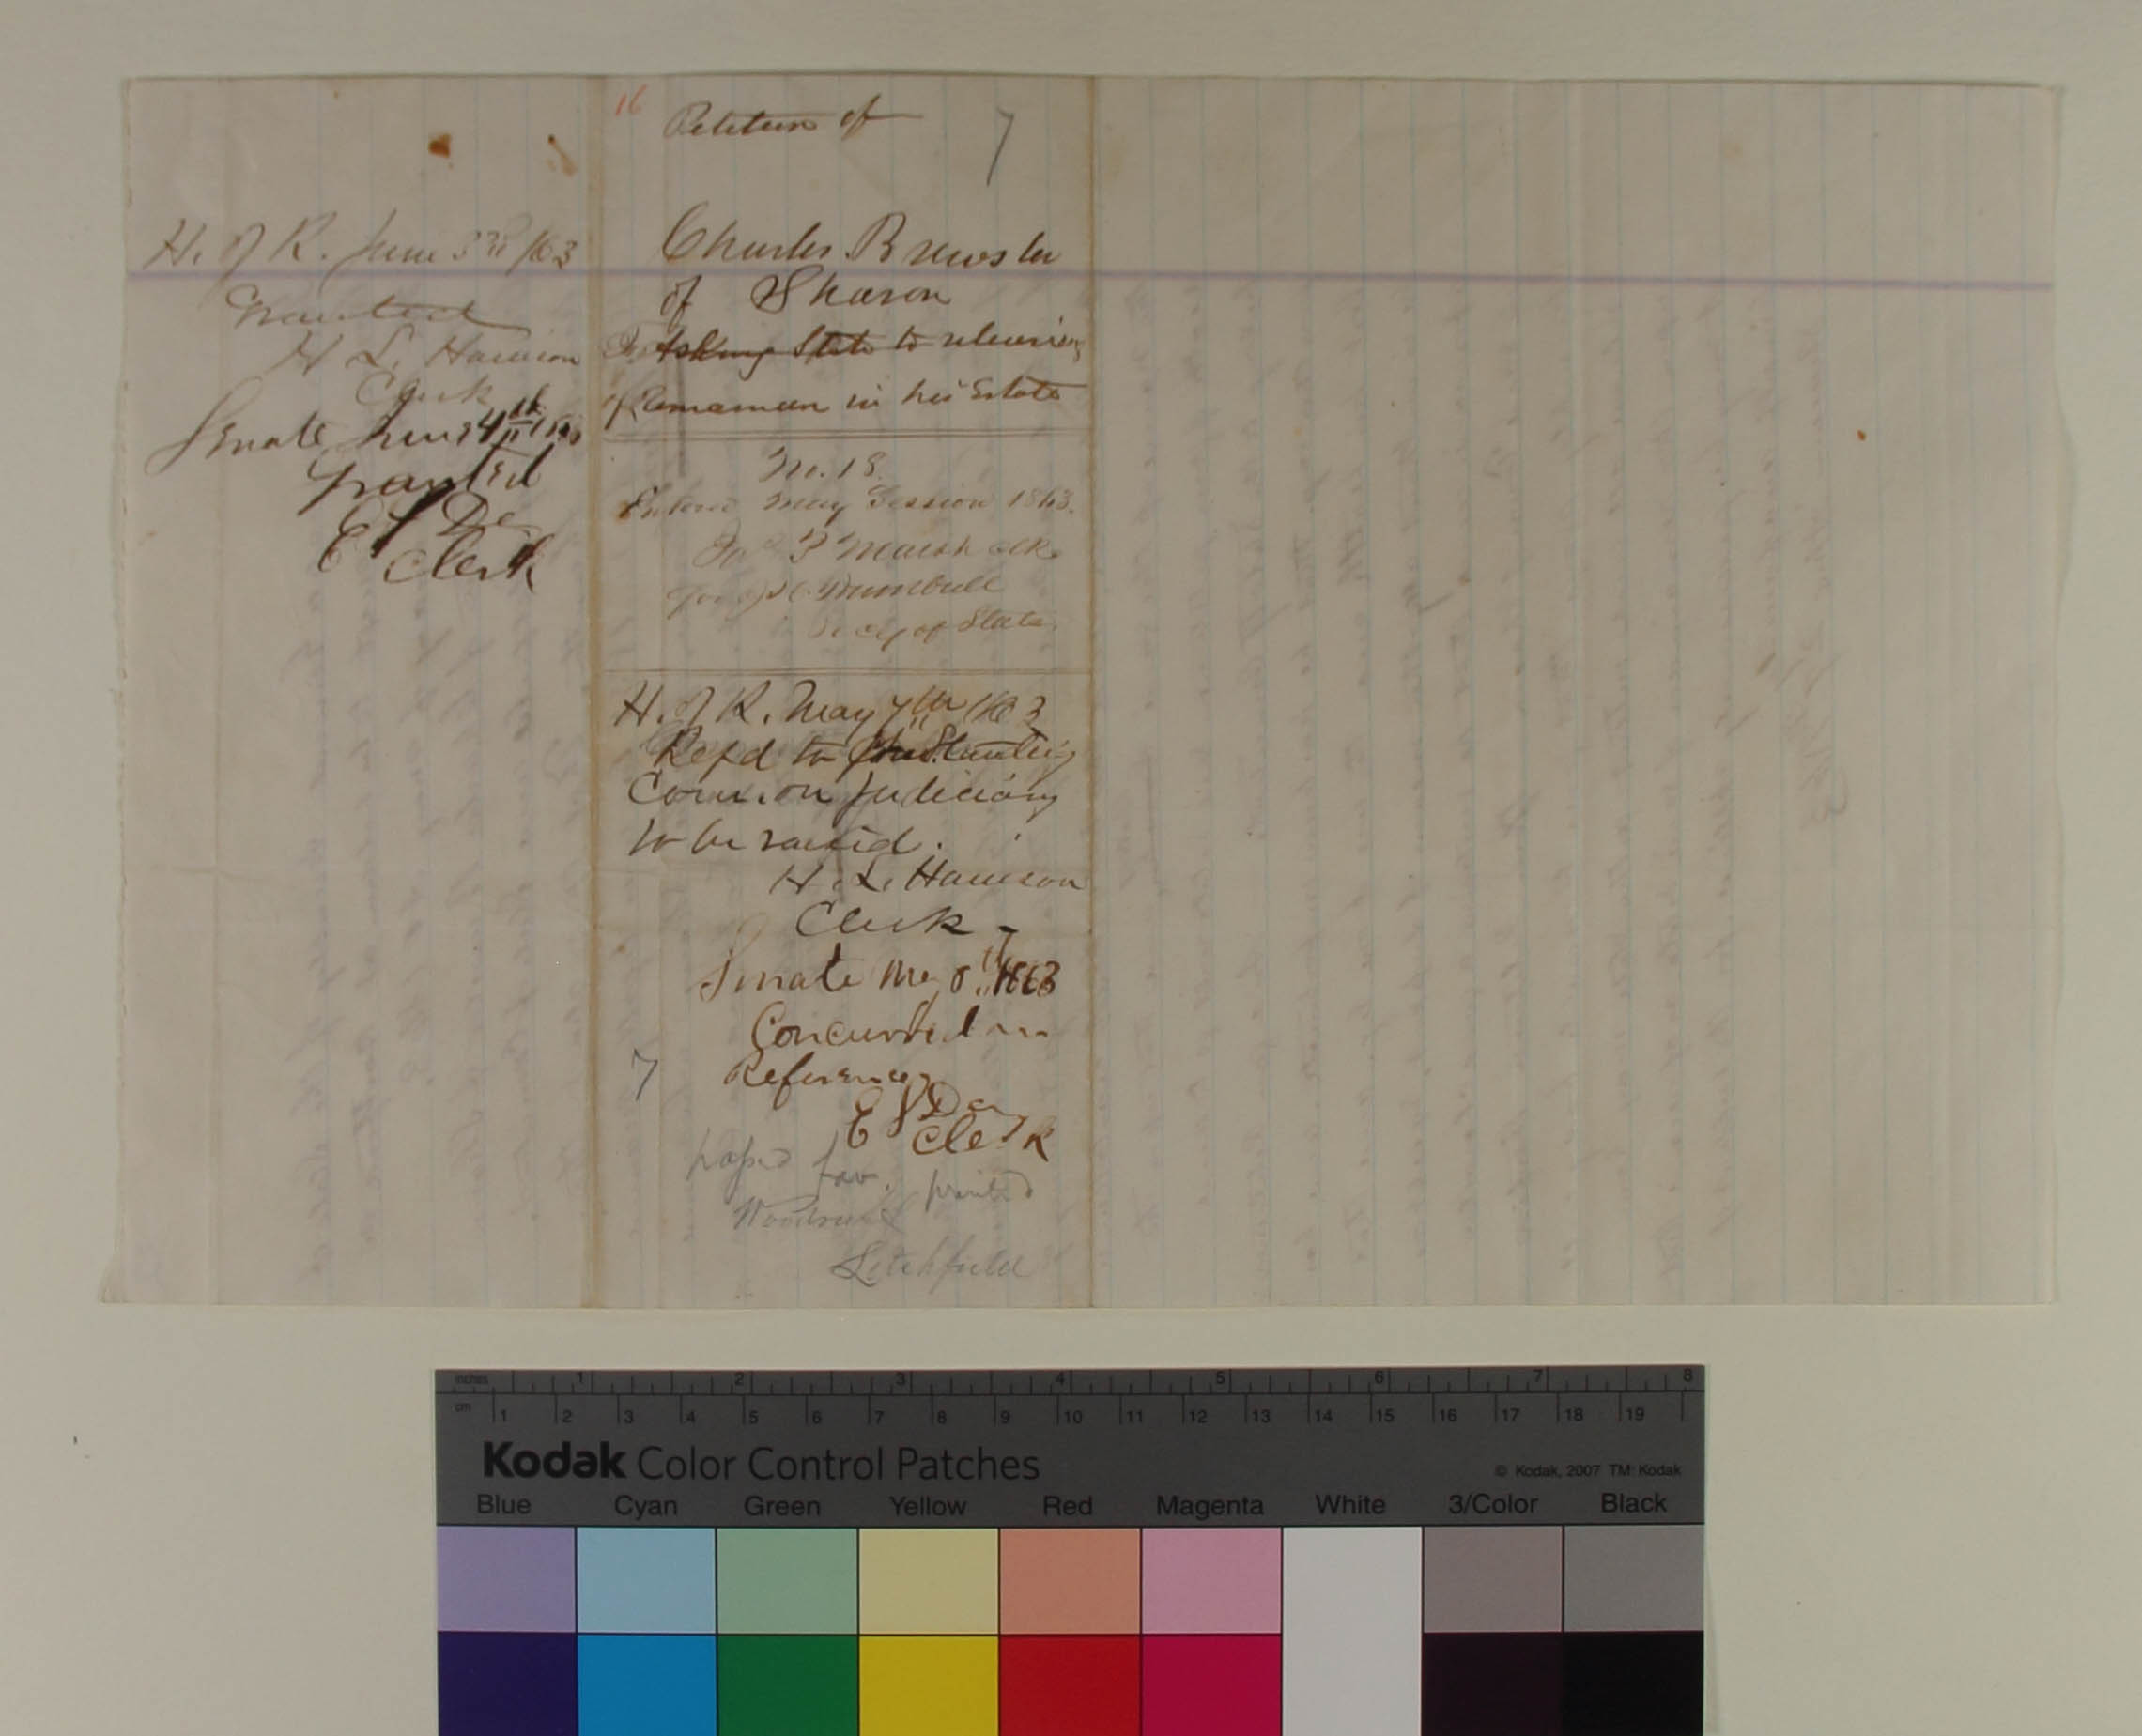 H. of R. June 3rd /63
Granted
H. L. Harrison
Clerk
Senate June 4th 1863
granted
E S Day
Clerk
16
Petition of
7
Charles Brewster
of Sharon
Asking State to
remainder in his Estate
No. 18.
Entered May Session 1863.
F Marsh clk
J. H. Trumbull
Secy of State
H. of R. May 7th 1863
Refd to Standing
Com. on Judiciary
to be raised.
H. L. Harrison
Clerk
Senate May 8th 1863
Concurred in
Reference
7
E S Day
Clerk
fav. printed
Woodruff
Litchfield
inches 1 2 3 4 5 6 7 8
cm 1 2 3 4 5 6 7 8 9 10 11 12 13 14 15 16 17 18 19
Kodak Color Control Patches
© Kodak, 2007 TM: Kodak
Blue Cyan Green Yellow Red Magenta White 3/Color Black